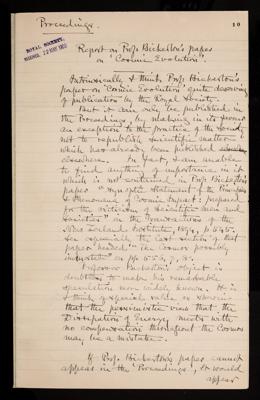 Proceedings.
10
ROYAL SOCIETY.
Report on Prof. Bickerton's paper
on "Cosmic Evolution".
Intrinsically I think Prof. Bickerton's
paper on "Cosmic Evolution" quite deserving
of publication by the Royal Society.
But it can only be published in
the Proceedings, by making in its favour
an exception to the practice of the Society
not to republish scientific matter
which has already been published
elsewhere. In fact, I am unable
to find anything of importance in it
which is not contained in Prof. Bickerton's
paper "Synoptic Statement of the Principles
& Phenomena of Cosmic Impact: prepared
for the criticism of Scientific Men and
Societies" in the Transactions of the
New Zealand Institute, 1894, p 545.
See especially the last section of that
paper headed "The Cosmos possibly
immortal" on pp 556, 7, 8.
Professor Bickerton's object is
doubtless to make his remarkable
speculation more widely known. It is
I think of special value in showing
that the pessimistic view that the
Dissipation of Energy meets with
no compensation throughout the Cosmos
may be a mistake.
If Prof. Bickerton's paper cannot
appear in the Proceedings, it would
appear